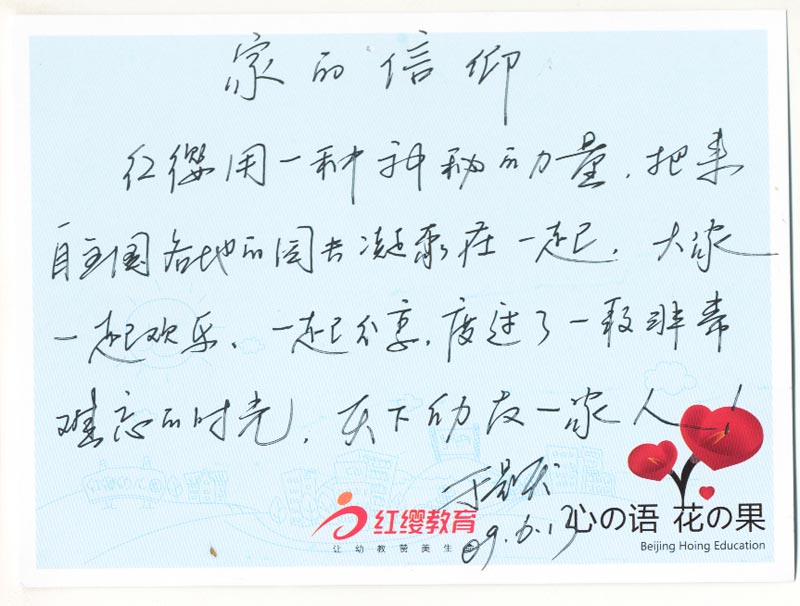 家的信仰
红缨用一种神秘的力量,把来
自全国各地的园长凝聚在一起,大家
一起欢乐、一起分享,度过了一段非常
难忘的时光,天下幼教一家人!
09.6.13
红缨教育
让幼教赞美生命
心の语 花の果
Beijing Hoing Education